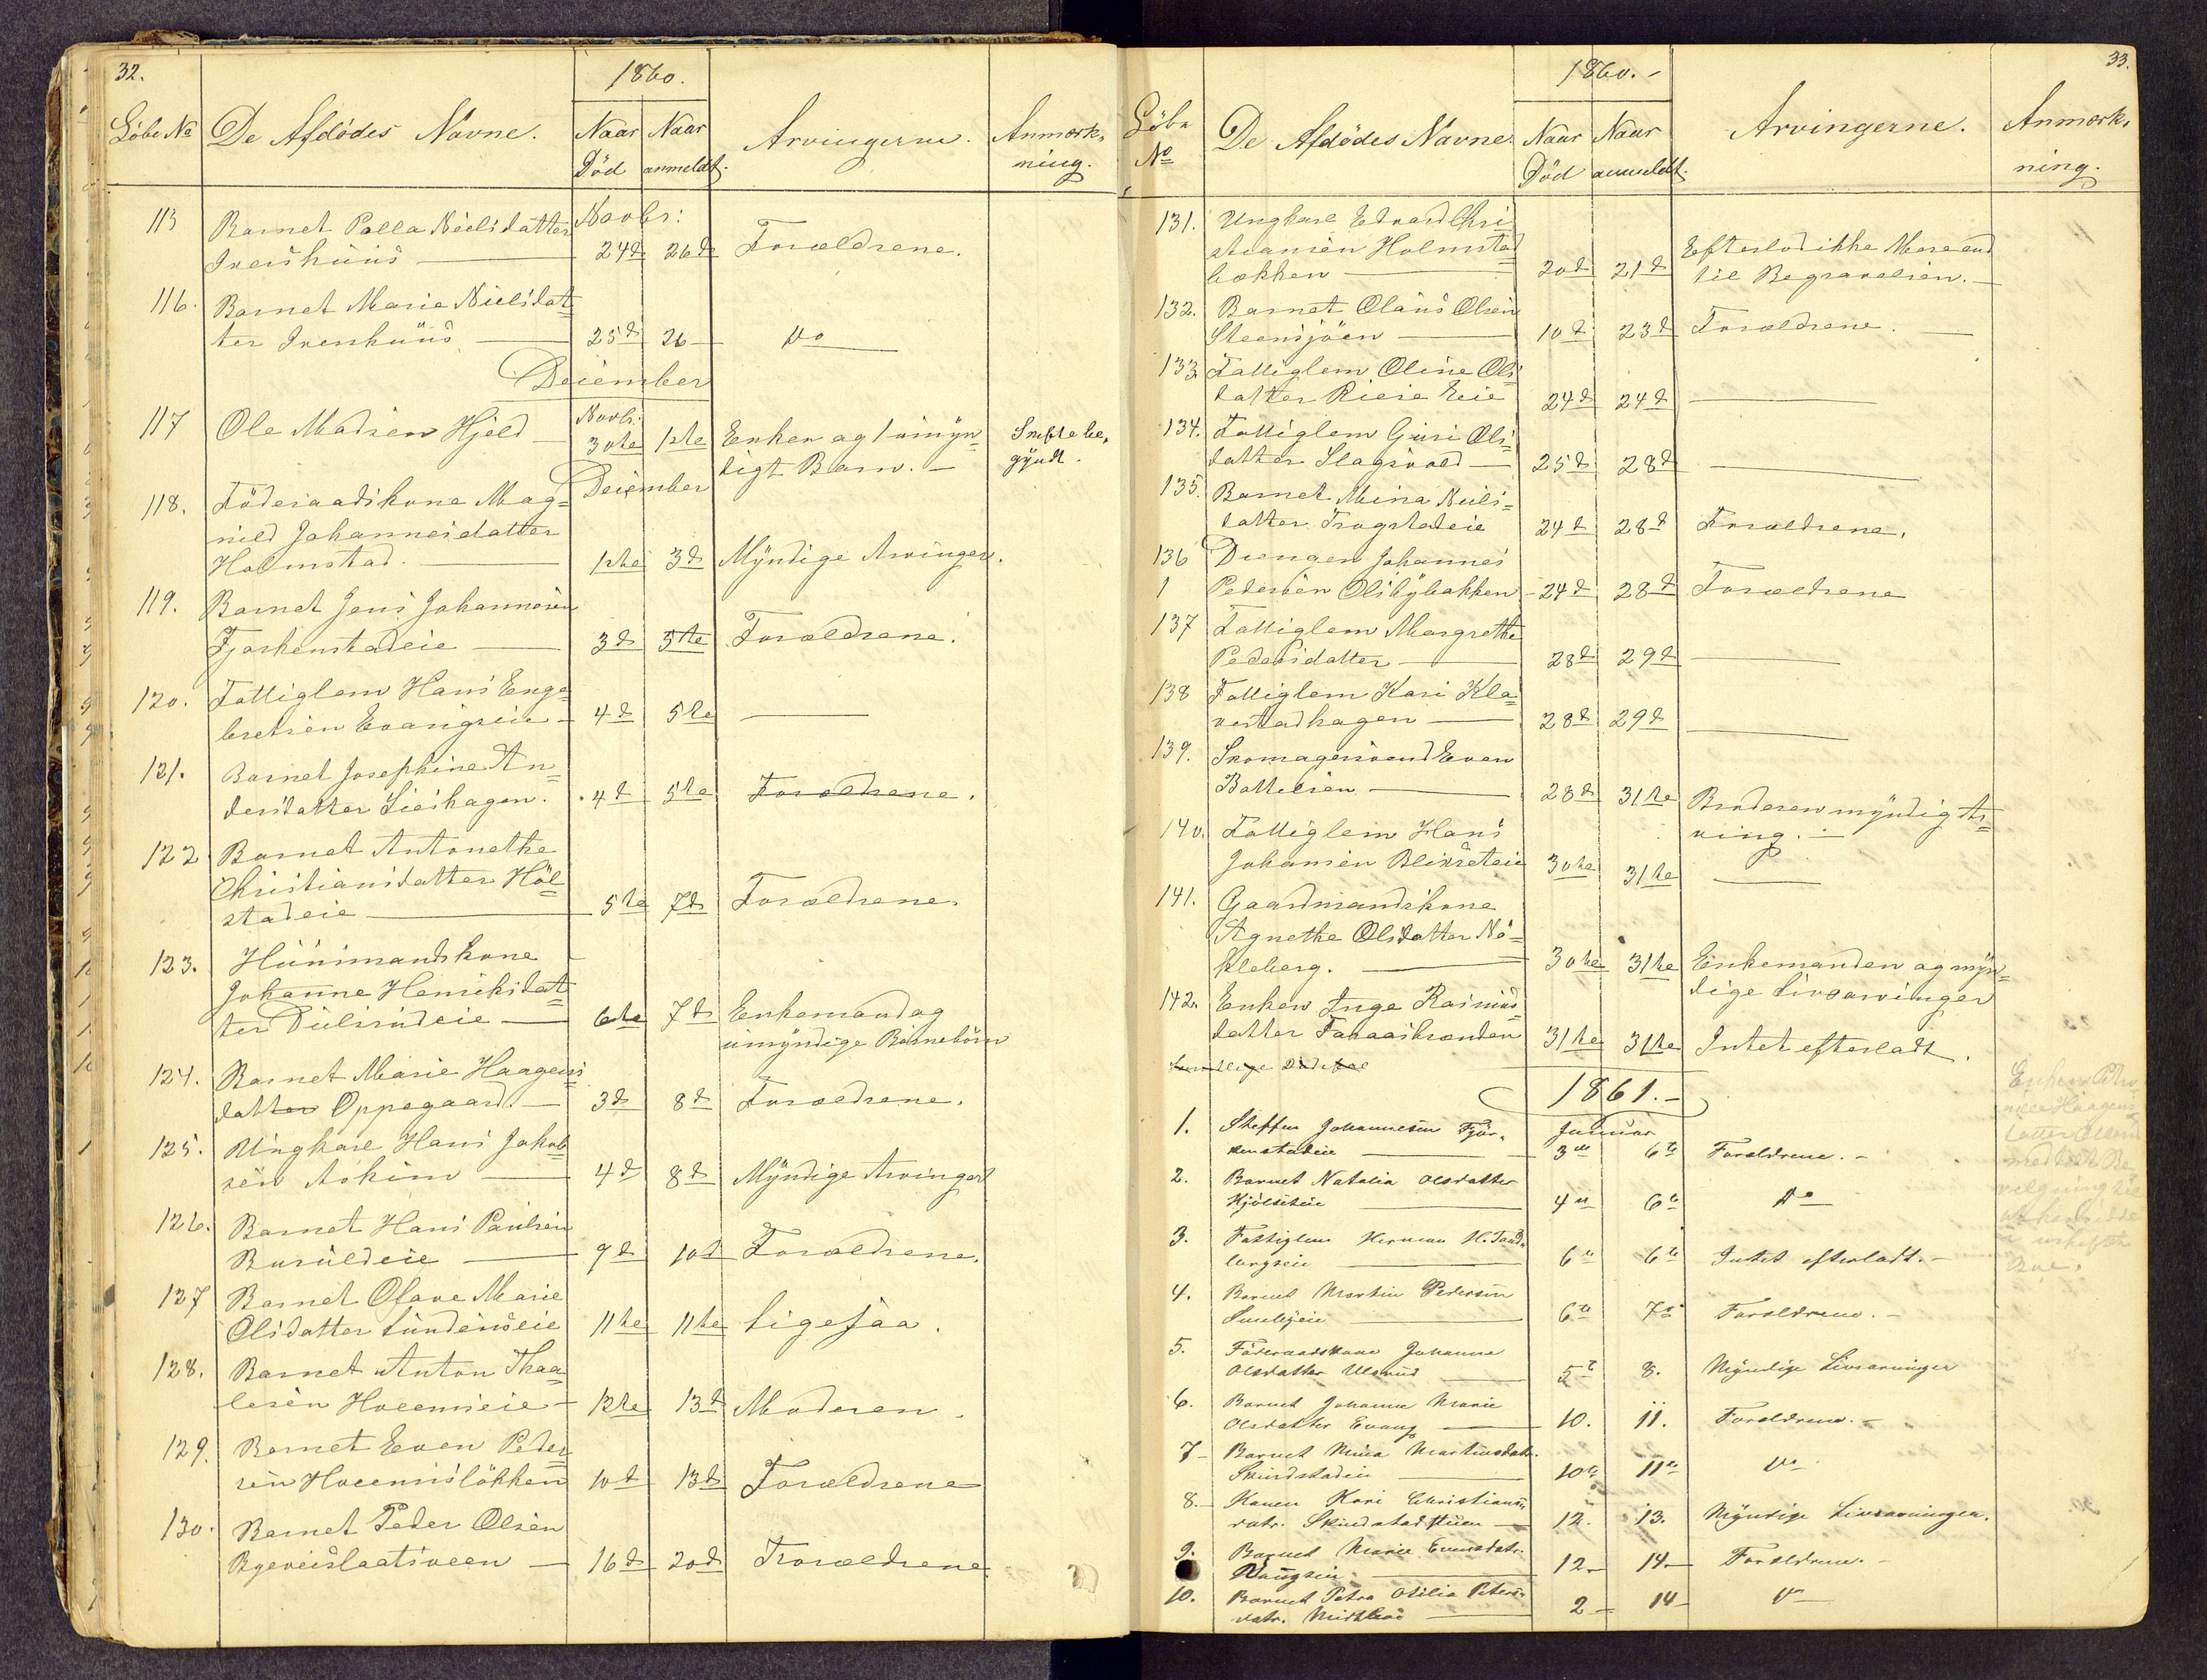 32.
1860.
Löbe No De Afdödes Navne. Naar Död Naar anmeldt. Arvingerne. Anmærkning.
113 Barnet Palla Nielsdatter Novbr:
Ivershuus 24d 26d Forældrene.
116. Barnet Marie Nielsdat=
ter Ivershuus 25d 26 Do
December
117 Ole Madsen Hjeld Novbr: 30te 1ste Enken og 1 umyn=
digt Barn. Skifte be=
gyndt.
118. Föderaadskone Mag= December
nild Johannesdatter
Holmstad. 1ste 3d Myndige Arvinger.
119. Barnet Jens Johannesen
Fjoskenstadeie 3d 5te Forældrene.
120. Fattiglem Hans Enge=
bretsen Evangseie 4d 5te
121. Barnet Josephine An=
dersdatter Lieshagen. 4d 5te Forældrene.
122 Barnet Antonethe
Christiansdatter Höl=
stadeie 5te 7d Forældrene.
123. Huusmandskone
Johanne Henriksdat=
ter Dulsrudeie 6te 7d Enkemand og
umyndige Börnebörn
124. Barnet Marie Haagens=
datter Oppegaard. 3d 8d Forældrene.
125. Ungkarl Hans Jakob=
sen Askim 4d 8d Myndige Arvinger
126. Barnet Hans Paulsen
Buruldeie 9d 10d Forældrene.
127 Barnet Olave Marie
Olsdatter Lundenseie 11te 11te Ligesaa.
128. Barnet Anton Thaa=
lesen Hoeemseie 12te 13d Moderen.
129. Barnet Even Peder=
sen Hoeemslökken 10d 13d Forældrene
130. Barnet Peder Olsen
16d 20d Forældrene
33.
1860.-
Löbe No De Afdödes Navne. Naar Död Naar anmeldt. Arvingerne. Anmærkning.
131. Ungkarl Edvard Chri=
stiansen Holmstad=
bakken 20d 21d Efterlod ikke Mere end
til Begravelsen.-
132. Barnet Olaus Olsen
Steensjöen 10d 23d Forældrene.
133. Fattiglem Oline Ols=
datter Riise Eie 24d 24d
134. Fattiglem Guri Ols=
datter Slagsvold 25d 28d
135. Barnet Mina Niels=
datter Trogstadeie 24d 28d Forældrene.
136 Drengen Johannes
1 Pedersen Olsbybakken 24d 28d Forældrene
137 Fattiglem Margrethe
Pedersdatter 28d 29d
138 Fattiglem Kari Kla=
vestadhagen 28d 29d
139. Skomagersvend Even
Bottelsen 28d 31te Broderen myndig Ar=
ving.-
140. Fattiglem Hans
Johansen Blixrseteie 30te 31te
141. Gaardmandskone
Agnethe Olsdatter Nö=
kleberg. 30te 31te Enkemanden og myn=
dige Livsarvinger
142. Enken Inge Rasmus=
datter Fahaasbraaden 31te 31te Intet efterladt.
1861.-
1. Steffen Johannesen Fjös= Januar
kenstadeie 3de 6te Forældrene.-
2. Barnet Natalia Olsdatter
Hjölseteie 4de 6te Do
3. Fattiglem Herman H. Tand=
bergseie 6te 6te Intet efterladt.-
4. Barnet Martin Pedersen
6te 7de Forældrene.-
5. Föderaadskone Johanne
Olsdatter Ulsrud 5te 8. Myndige Livsarvinger
6. Barnet Johanne Marie
Olsdatter Evang 10. 11. Forældrene.-
7 Barnet Mina Martinsdatr.
Skindstadeie 10de 11te Do
8. Konen Kari Christians=
datr. Skindstadstuen 12. 13. Myndige Livsarvinger.
9. Barnet Marie Evensdatr.
12 14 Forældrene.-
10. Barnet Petra Otilia Peters=
datr. 2 14 Do
Enken Petro=
nille Haagens=
datter